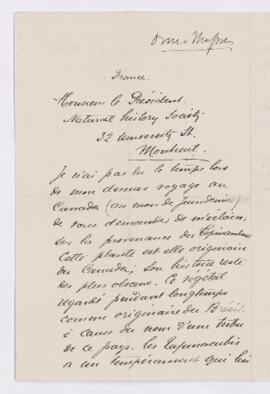 France.
Monsieur le Président.
Natural history Society
32 University St.
Montreal.
Je n'ai pas eu le temps lors
de mon dernier voyage au
Canada (au mois de
de vous demander
sur la provenance des Topinambour
Cette plante est elle originaire
du Canada; son histoire est
des plus obscure. Ce végétal
regardé pendant longtemps
comme originaire du Brésil
à cause du nom d'une tribu
de ce pays. les
a un tempérament qui lui